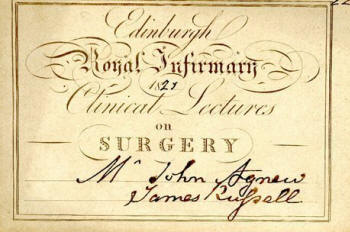 Edinburgh
Royal Infirmary
1821
Clinical Lectures
on
SURGERY
Mr John Agnew
James Russell